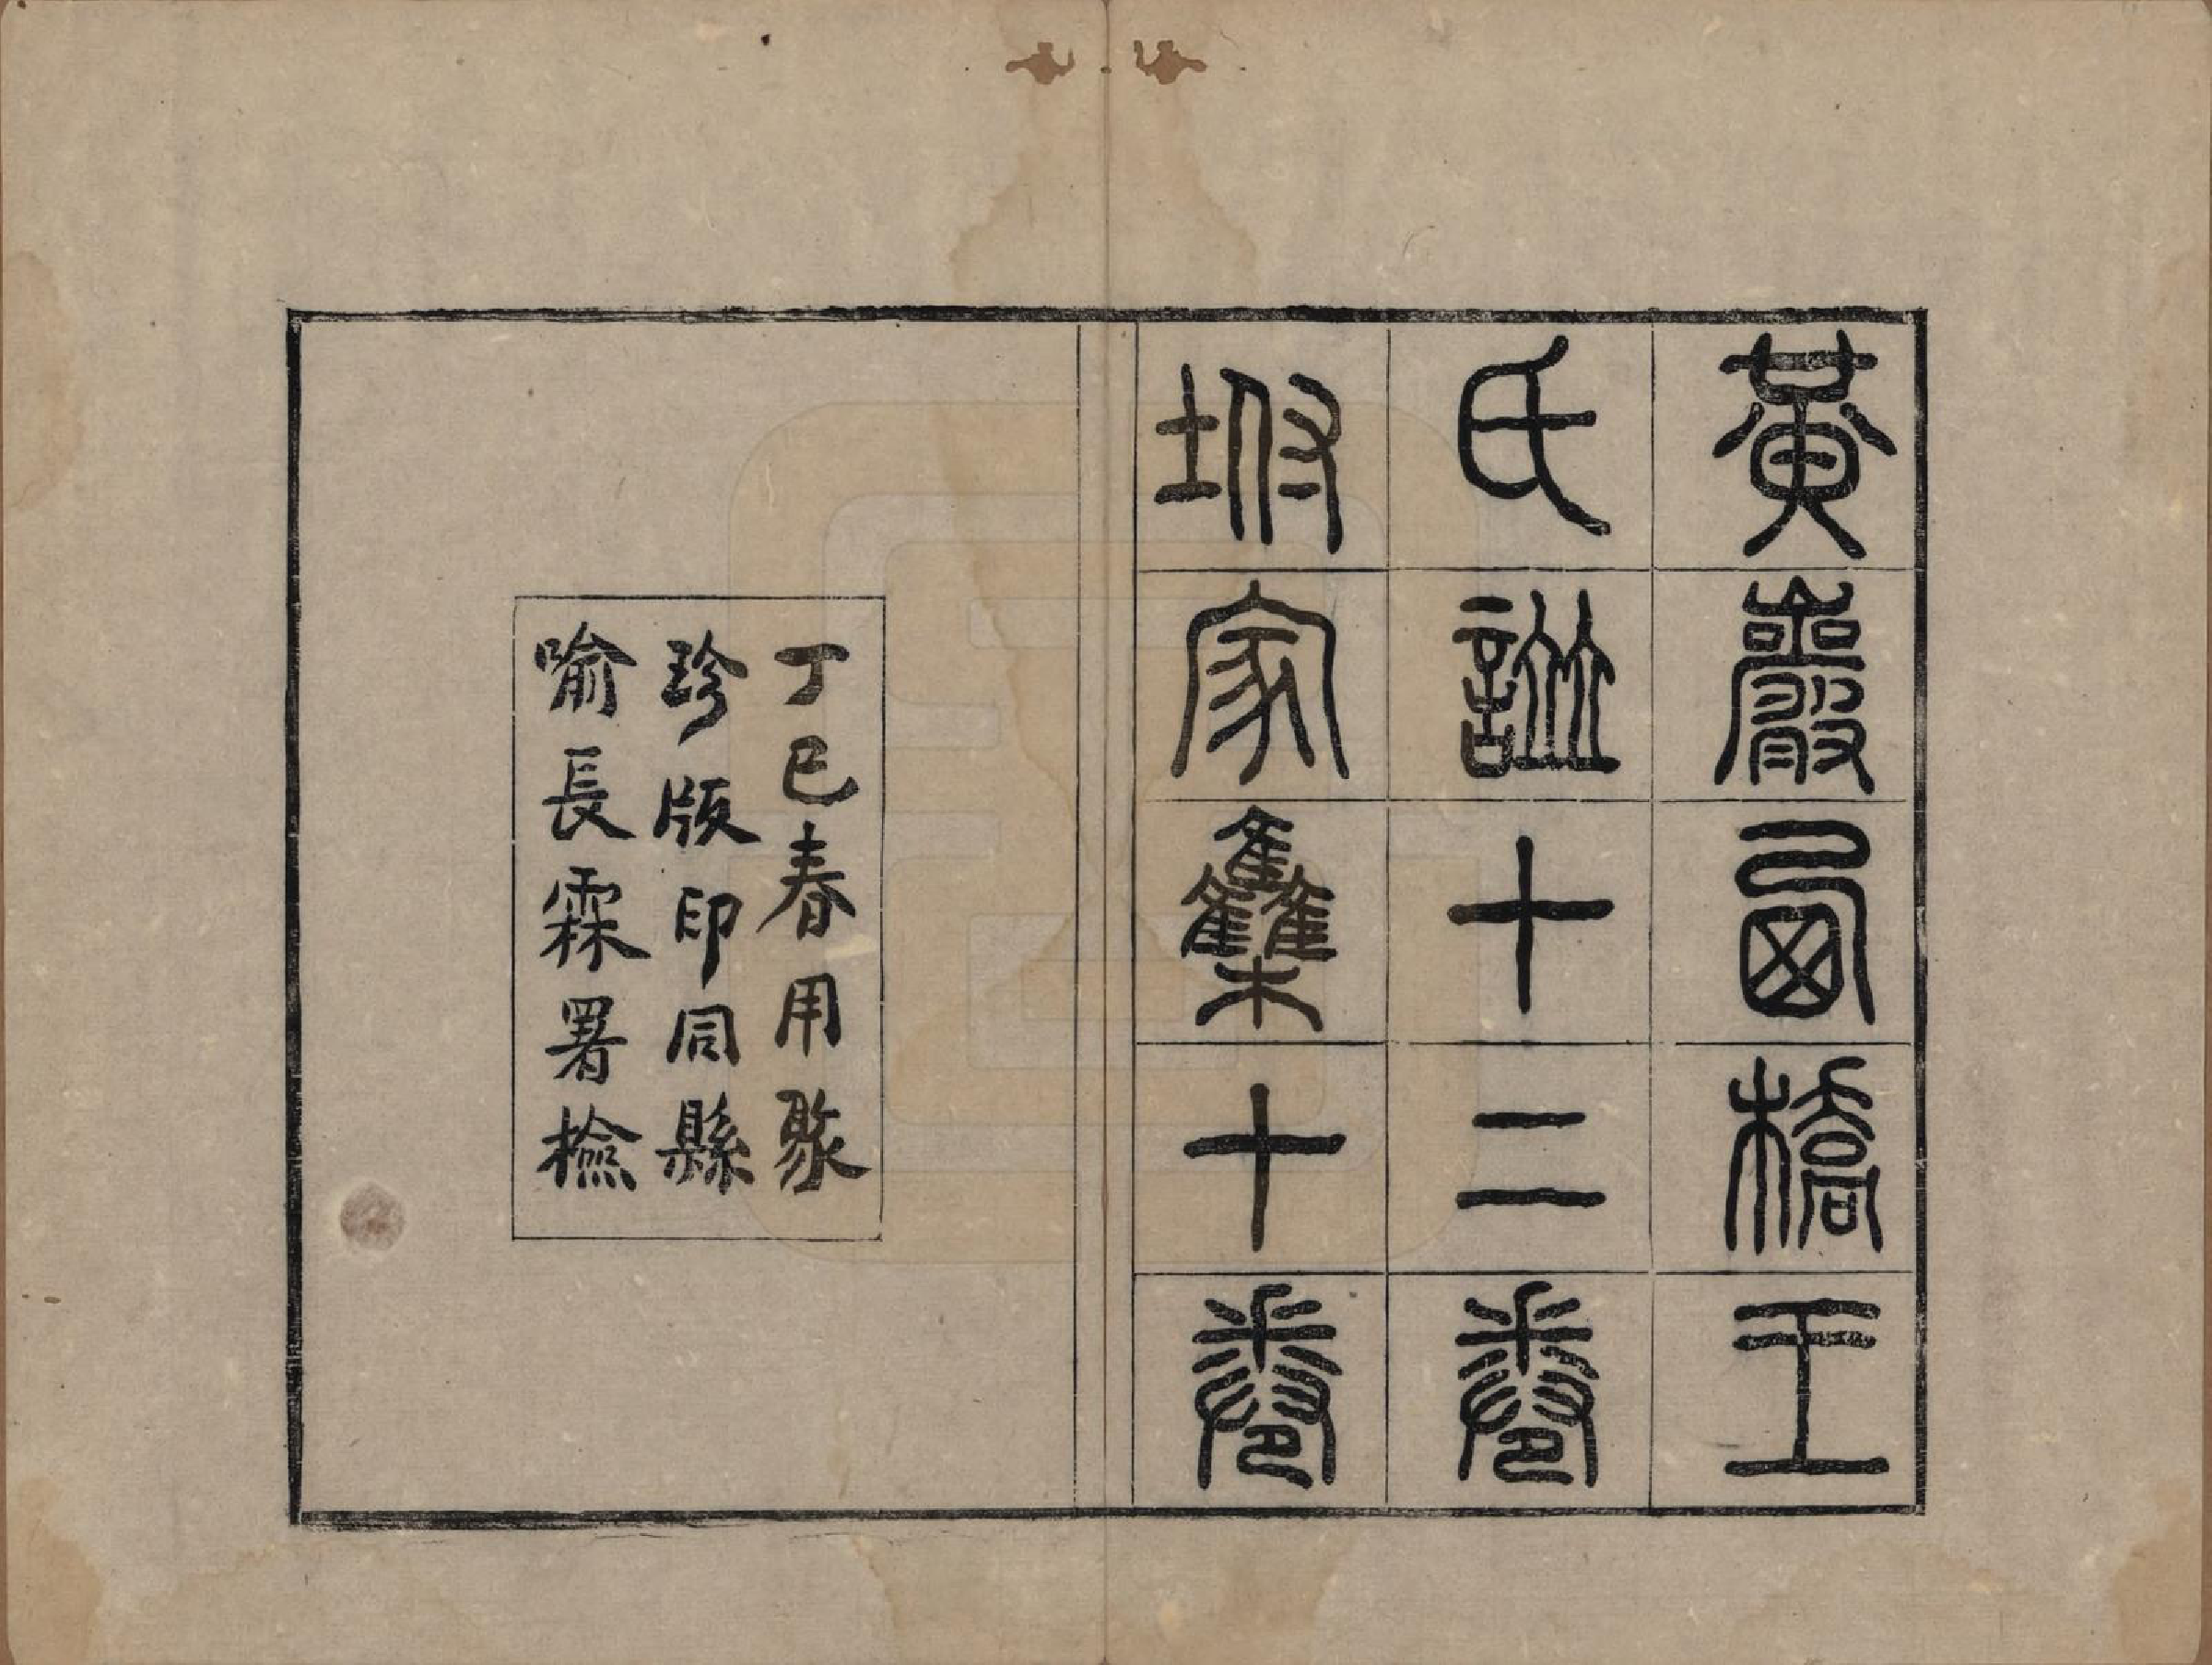 黃巖西橋王
氏譜十二卷
坿家集十卷
丁巳春用聚
珍版印同縣
喻長霖署檢